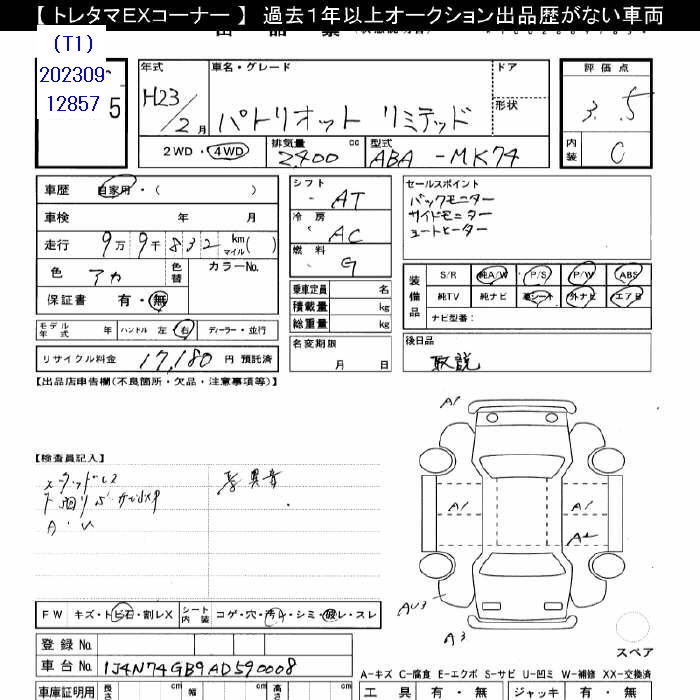 【 トレタマEXコーナー 】 過去1年以上オークション出品歴がない車両
(T1)
202309-
12857
5
年式
H23/2月
車名・グレード
パトリオット リミテッド
ドア
形状
評価点
3.5
2WD・4WD
排気量
2,400 cc
型式
ABA-MK74
内装
C
車歴 自家用・( )
車検 年 月
走行 9万9千832km マイル( )
色 アカ 色替
カラーNo.
保証書 有・無
モデル年式 年 ハンドル 左 右 ディーラー・並行
リサイクル料金 17,180円 預託済
シフト AT
冷房 AC
燃料 G
乗車定員 名
積載量 kg
総重量 kg
名変期限
月 日
セールスポイント
バックモニター
サイドモニター
シートヒーター
装備品
S/R 純A/W P/S P/W ABS
純TV 純ナビ 革シート 外ナビ エアB
ナビ型番:
後日品
取説
【出品店申告欄(不良箇所・欠品・注意事項等)】
【検査員記入】
スタッドレス
A・U
異音
A1
A1
A1
A2
AU3
A3
スペア
FW キズ・トビ石・割レX シート内装 コゲ・穴・汚レ・シミ・破レ・スレ
登録 No.
車台 No. 1J4N74GB9AD590008
A-キズ C-腐食 E-エクボ S-サビ U-凹ミ W-補修 XX-交換済
車庫証明用 長さ cm 幅 cm 高さ cm
工具 有・無 ジャッキ 有・無